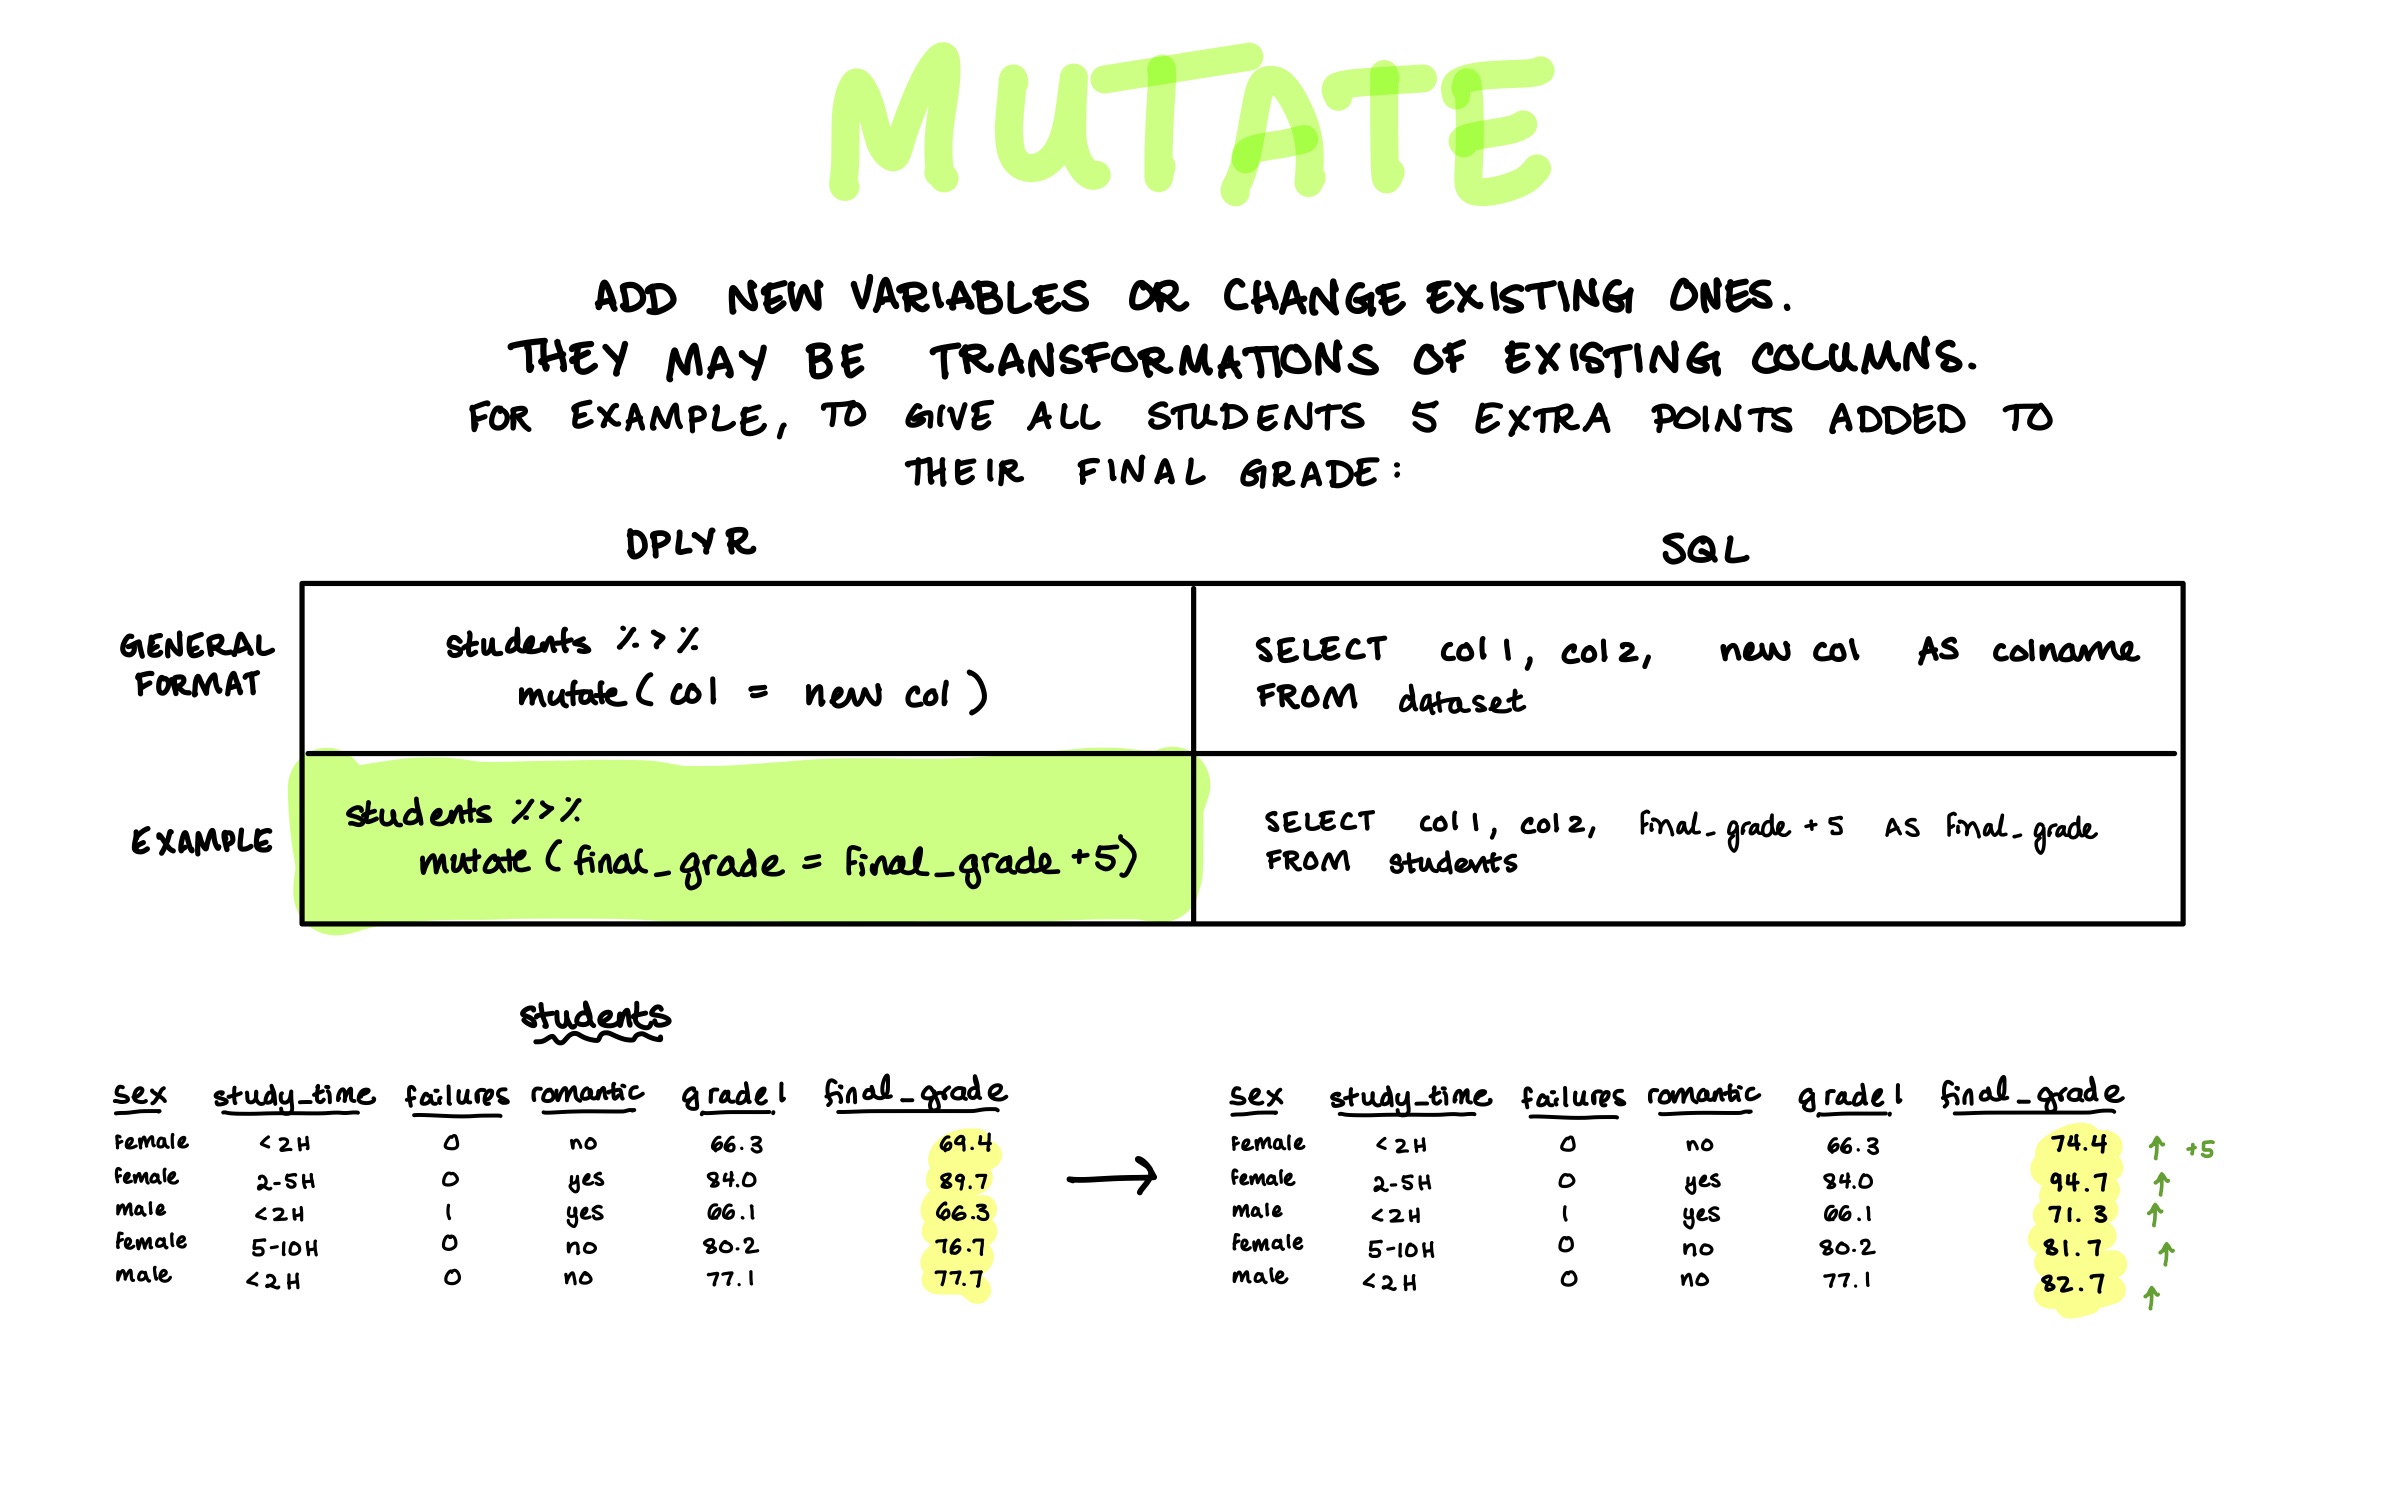 MUTATE
ADD NEW VARIABLES OR CHANGE EXISTING ONES.
THEY MAY BE TRANSFORMATIONS OF EXISTING COLUMNS.
FOR EXAMPLE, TO GIVE ALL STUDENTS 5 EXTRA POINTS ADDED TO
THEIR FINAL GRADE:
DPLYR
SQL
GENERAL
FORMAT
students %>%
mutate( col = new col )
SELECT col1, col2, new col AS colname
FROM dataset
EXAMPLE
students %>%
mutate (final_grade = final_grade +5)
SELECT col1, col2, final_grade +5 AS final_grade
FROM students
students
sex study_time failures romantic grade1 final_grade
female <2H 0 no 66.3 69.4
female 2-5H 0 yes 84.0 89.7
male <2H 1 yes 66.1 66.3
female 5-10H 0 no 80.2 76.7
male <2H 0 no 77.1 77.7
→
sex study_time failures romantic grade1 final_grade
female <2H 0 no 66.3 74.4 ↑ +5
female 2-5H 0 yes 84.0 94.7 ↑
male <2H 1 yes 66.1 71.3 ↑
female 5-10H 0 no 80.2 81.7 ↑
male <2H 0 no 77.1 82.7 ↑